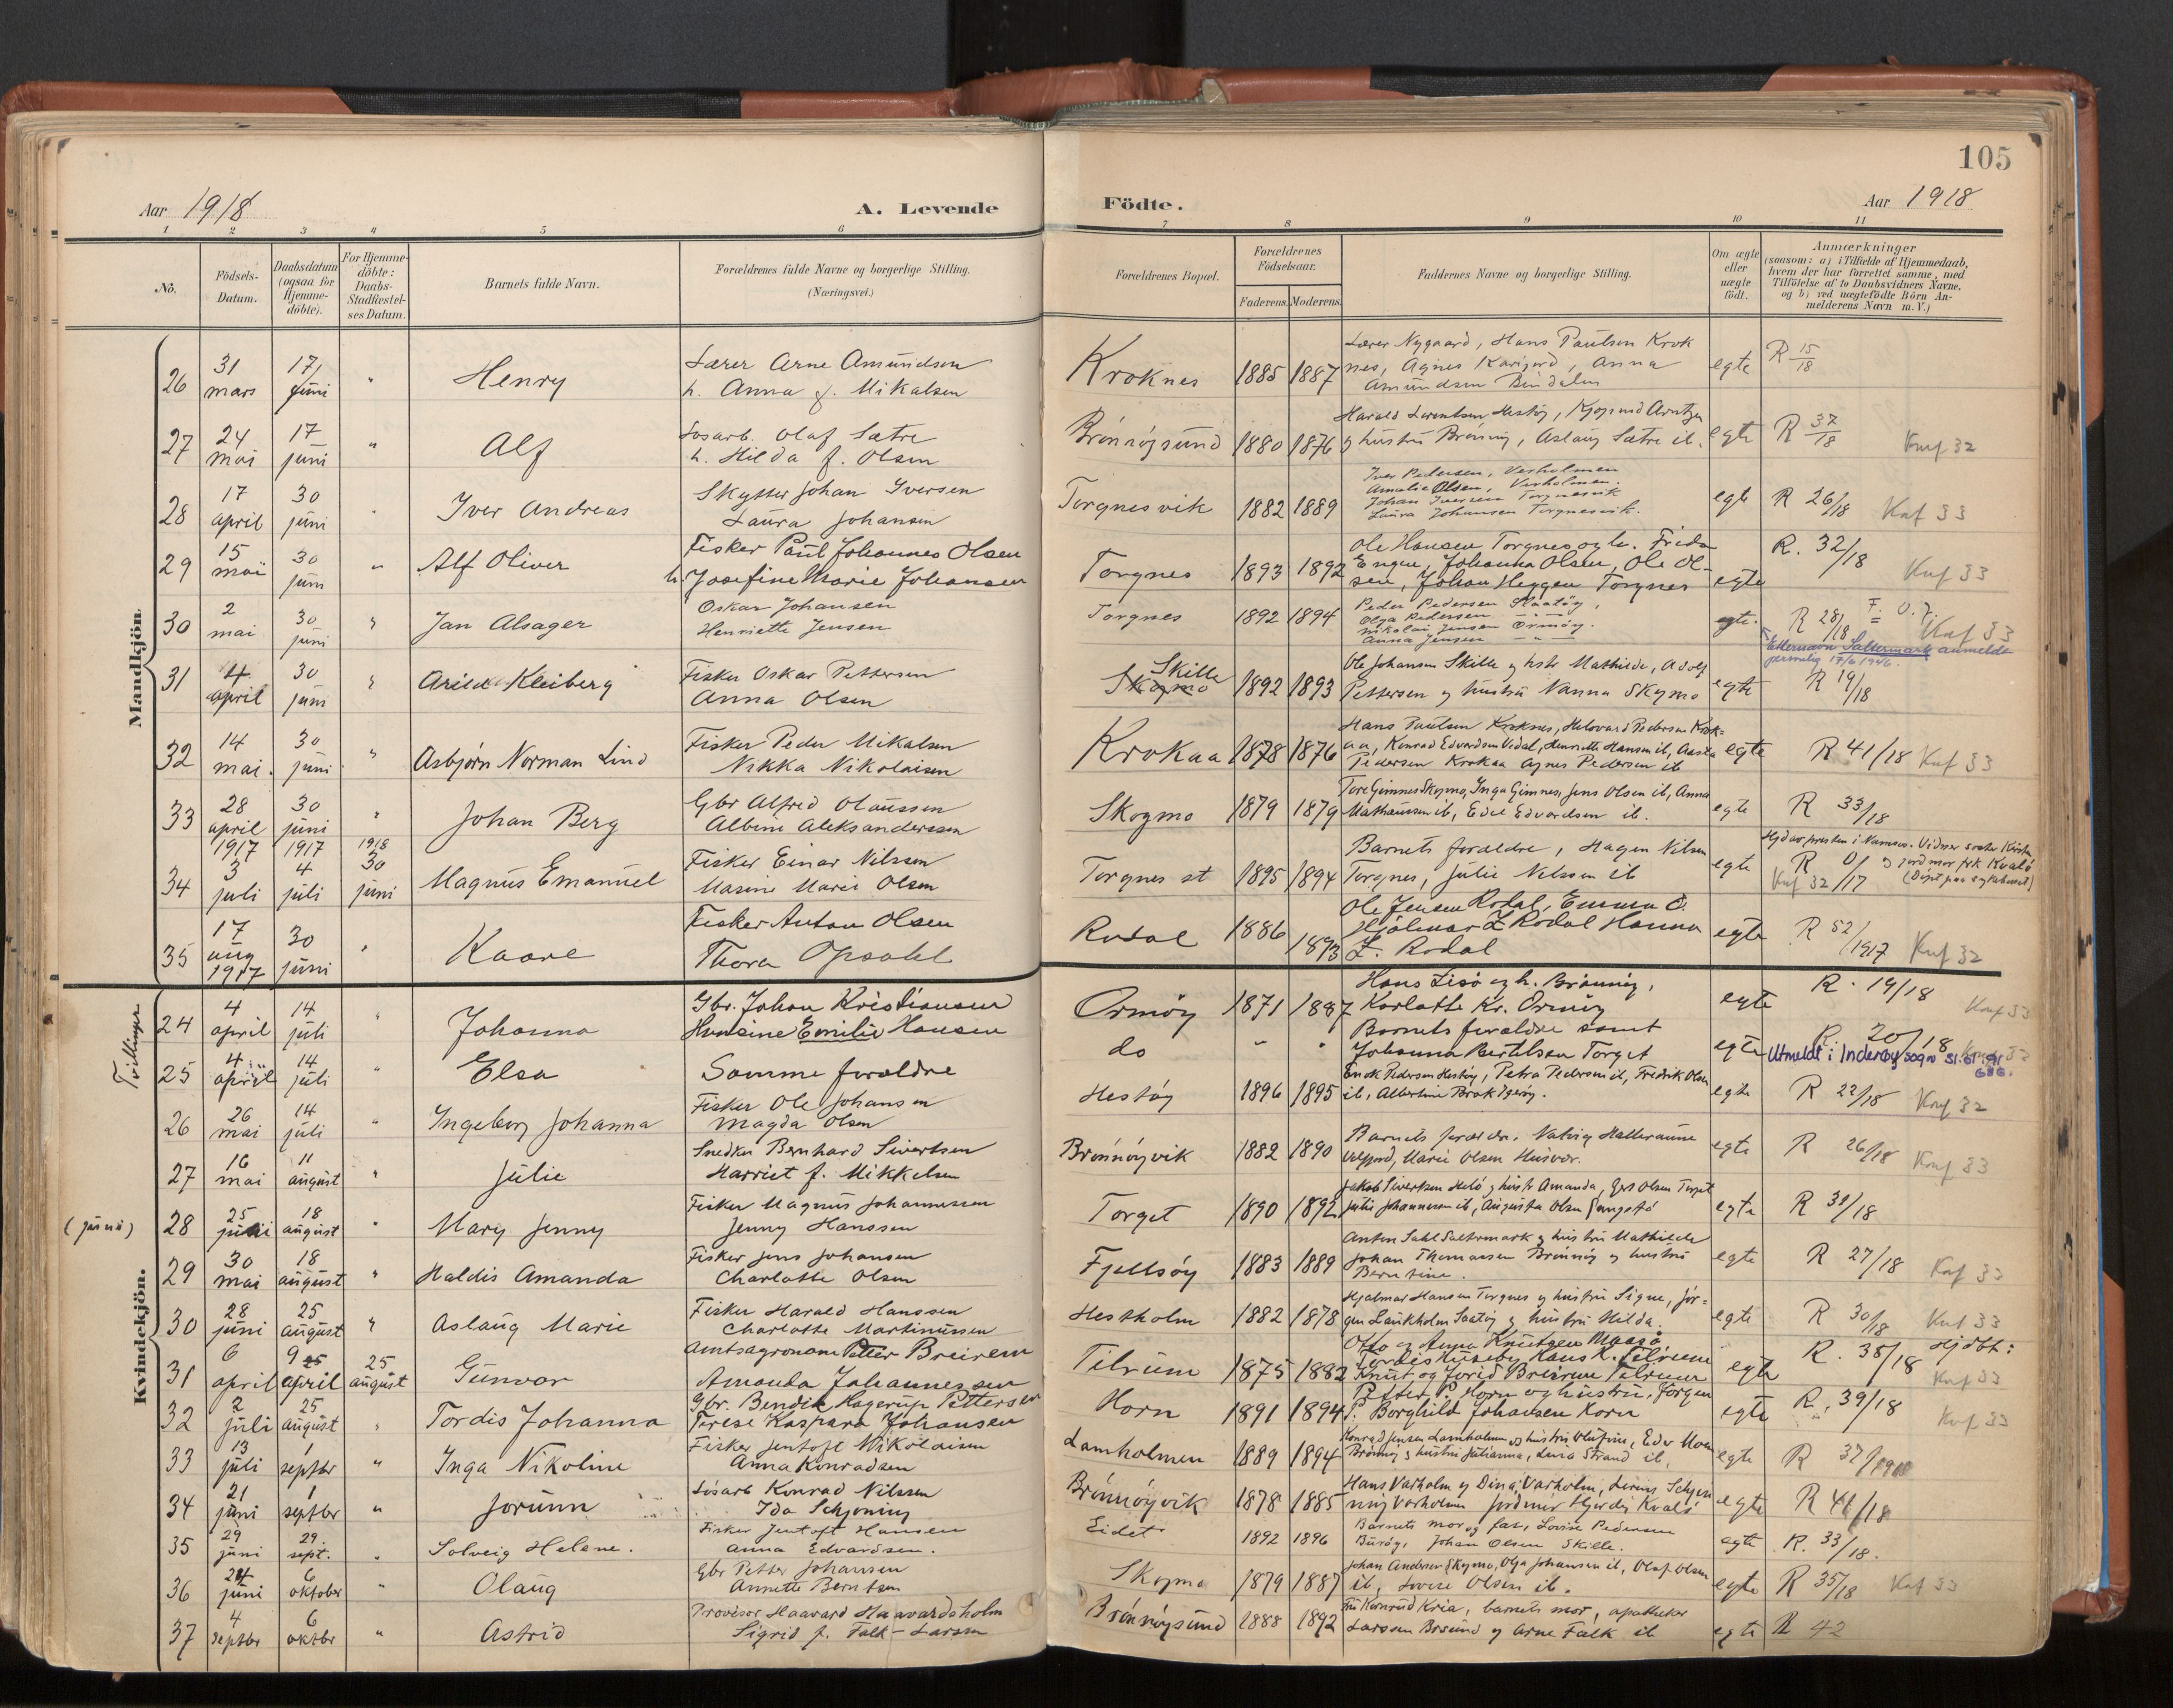 105
Aar 1918
A. Levende
Födte.
Aar 1918
1 2 3 4 5 6 7 8 9 10 11
No.
Födsels-Datum.
Daabsdatum (ogsaa for Hjemme-döbte).
For Hjemme-döbte: Daabs-Stadfæstel-ses Datum.
Barnets fulde Navn.
Forældrenes fulde Navne og borgerlige Stilling.
(Næringsvei.)
Forældrenes Bopæl.
Forældrenes Födselsaar.
Faderens. Moderens.
Faddernes Navne og borgerlige Stilling.
Om ægte eller uægte födt.
Anmærkninger
(saasom: a) i Tilfælde af Hjemmedaab, hvem der har forrettet samme, med Tilföielse af to Daabsvidners Navne, og b) ved uægtefödte Börn An-melderens Navn m.V.)
Mandkjön.
26 31 mars 17/ juni " Henry
Lærer Arne Amundsen
h. Anna f. Mikalsen
Kroknes 1885 1887
Lærer Nygaard, Hans Paulsen Krok
nes, Agnes, Anna
Amundsen Bindalen
egte R 15/18
27 24 mai 17 juni " Alf
Løsarb. Olaf Sætre
h. Hilda f. Olsen
Brønnøysund 1880 1876
Harald Lorentsen Hestøy, Kjøpmd Arntzen
og hustru Brønnøy, Aslaug Sætre ib.
egte R 37/18 Knf 32
28 17 april 30 juni " Iver Andreas
Skytter Johan Iversen
Laura Johansen
Torgnesvik 1882 1889
Iver Pedersen, Verholmen
Amalie Olsen, Verholmen.
Johan Iversen Torgnesvik
Laura Johansen Torgnesvik.
egte R 26/18 Knf 33
29 15 mai 30 juni " Alf Oliver
Fisker Paul Johannes Olsen
h. Josefine Marie Johansen
Torgnes 1893 1892
Ole Hansen Torgnes og h. Frida
Engen, Johanna Olsen, Ole Ol-
sen, Johan Heggen Torgnes
egte R. 32/18 Knf 33
30 2 mai 30 juni " Jan Alsager
Oskar Johansen
Henriette Jensen
Torgnes 1892 1894
Peder Pedersen Slaatøy,
Olga Pedersen
Nikolai Jensen Ormøy.
Anna Jensen — " —
egte. R 28/18 F. O. J. Knf 33
Etternavn Saltermark anmeldt
personlig 17/6 1946.
31 4 april 30 juni " Arild Kleiberg
Fisker Oskar Pettersen
Anna Olsen
Skille
Skogmo 1892 1893
Ole Johansen Skille og hstr Mathilde, Adolf
Pettersen og hustru Nanna Skogmo
egte R 19/18
32 14 mai. 30 juni " Asbjørn Norman Lind
Fisker Peder Mikalsen
Nikka Nikolaisen
Krokaa 1878 1876
Hans Paulsen Kroknes, Halvard Pedersen Krok-
aa, Konrad Edvardsen Vedal, Henriette Hansen ib, Aasta
Pedersen Krokaa Agnes Pedersen ib
egte R 41/18 Knf 33
33 28 april 30 juni " Johan Berg
Gbr Alfred Olaussen
Albine Aleksanderssen
Skogmo 1879 1879
Tore Gimnes Skogmo, Inga Gimnes, Jens Olsen ib, Anna
Mathausen ib, Edel Edvardsen ib.
egte R 33/18
34 1917 3 juli 1917 4 juli 1918 30 juni Magnus Emanuel
Fisker Einar Nilssen
Masine Marie Olsen
Torgnes st 1895 1894
Barnets forældre, Hagen Nilsen
Torgnes, Julie Nilssen ib
egte
Hjd av presten i Namsos. Vidner søster Kirsten
R 0/17 og jordmor frk Kvalø
Knf 32 (Døpt paa sykehuset)
35 17 aug 1917 30 juni " Kaare
Fisker Anton Olsen
Thora Opsahl
Rodal 1886 1893
Ole Jensen Rodal, Emma O.
Hjalmar Z Rodal Hanna
Z. Rodal
egte R 52/1917 Knf 32
Kvindekjön.
Tvillinger
24 4 april 14 juli " Johanna
Gbr. Johan Kristiansen
Hansine Emilie Hansen
Ormøy 1871 1887
Hans Lisø og h. Brønnøy,
Karlotte Kr. Ormøy
egte R. 19/18 Knf 33
25 4 april 14 juli Elsa
Samme forældre
do " "
Barnets forældre samt
Johanna Bertelsen Torget
egte R. 20/18
Utmeldt i Inderøy sogn 31.01.91
26 26 mai 14 juli " Ingeborg Johanna
Fisker Ole Johansen
Magda Olsen
Hestøy 1896 1895
Enok Pedersen Hestøy, Petra Pedersen ib, Fredrik Olsen
ib, Albertine Brak Igerøy.
egte R 22/18 Knf 32
27 16 mai 11 august " Julie
Snedker Bernhard Sivertsen
Harriet f. Mikkelsen
Brønnøyvik 1882 1890
Barnets forældre, Natvig Hatteraune
Velfjord, Marie Olsen Husvær.
egte R 26/18 Knf 33
(juni)
28 25 juni 18 august " Mary Jenny
Fisker Magnus Johannessen
Jenny Hanssen
Torget 1890 1892
Jakob Sivertsen Helø og hustr Amanda, Olsen Torget
Julie Johannessen ib, Augusta Olsen
egte R 31/18
29 30 mai 18 august " Haldis Amanda
Fisker Jens Johansen
Charlotte Olsen
Fjellsøy 1883 1889
Anton Sahl Saltermark og hustru Mathilde
Johan Thomassen Brønnøy og hustru
Berntine.
egte R 27/18 Knf 33
30 28 juni 25 august " Aslaug Marie
Fisker Harald Hanssen
Charlotte Martinussen
Hestholm 1882 1878
Hjalmar Hansen Torgnes og hustru Signe, Jør-
gen Laukholm Saatøy og hustru Hilda.
egte R 30/18 Knf 33
31 6 april 9 april 25 august Gunvor
Amtsagronom Petter Breirem
Amanda Johannessen
Tilrum 1875 1882
Otto og Anna Knutzen Maasø
Tordis Huseby, Hans K. Tilrum
Knut og Jorid Breirem Tilrum
egte R. 38/18 Hjdbt: Knf 33
32 2 juli 25 august " Tordis Johanna
Gbr. Bendik Hagerup Pettersen
Terese Kaspara Johansen
Horn 1891 1894
Petter P. Horn og hustru, Jørgen
P. Borghild Johansen Horn
egte R. 39/18 Knf 33
33 13 juli 1 septbr " Inga Nikoline
Fisker Jentoft Nikolaisen
Anna Konradsen
Lamholmen 1889 1894
Konrad Jensen Lamholmen og hustru Olufine, Eder Moen
Brønnøy og hustru Julianna, Lina Strand ib.
egte R 37/1918
34 21 juni 1 septbr " Jorunn
Løsarb Konrad Nilssen
Ida Schjoning
Brønnøyvik 1878 1885
Hans Varholm og Dina Varholm, Schjon
ning Varholmen Jordmor Hjerdis Kvalø
egte R 41/18
35 29 juni 29. sept. " Solveig Helene.
Fisker Jentoft Hansen
Anna Edvardsen.
Eidet 1892 1896
Barnets mor og far, Lovise Pedersen
Burøy, Johan Olsen Skille.
egte R. 33/18.
36 24 juni 6 oktober " Olaug
Gbr Petter Johansen
Annette Berntsen
Skogmo 1879 1887
Johan Andersen Skogmo, Olga Johansen ib, Olaf Olsen
ib, Lovise Olsen ib.
egte R 35/18 Knf 33
37 4 septbr 6 oktbr " Astrid
Provisor Haavard Haavardsholm
Sigrid f. Falk-Larssen
Brønnøysund 1888 1892
Fru Konrud Kria, barnets mor, apotheker
Larssen Brsund og Arne Falk ib
egte R 42